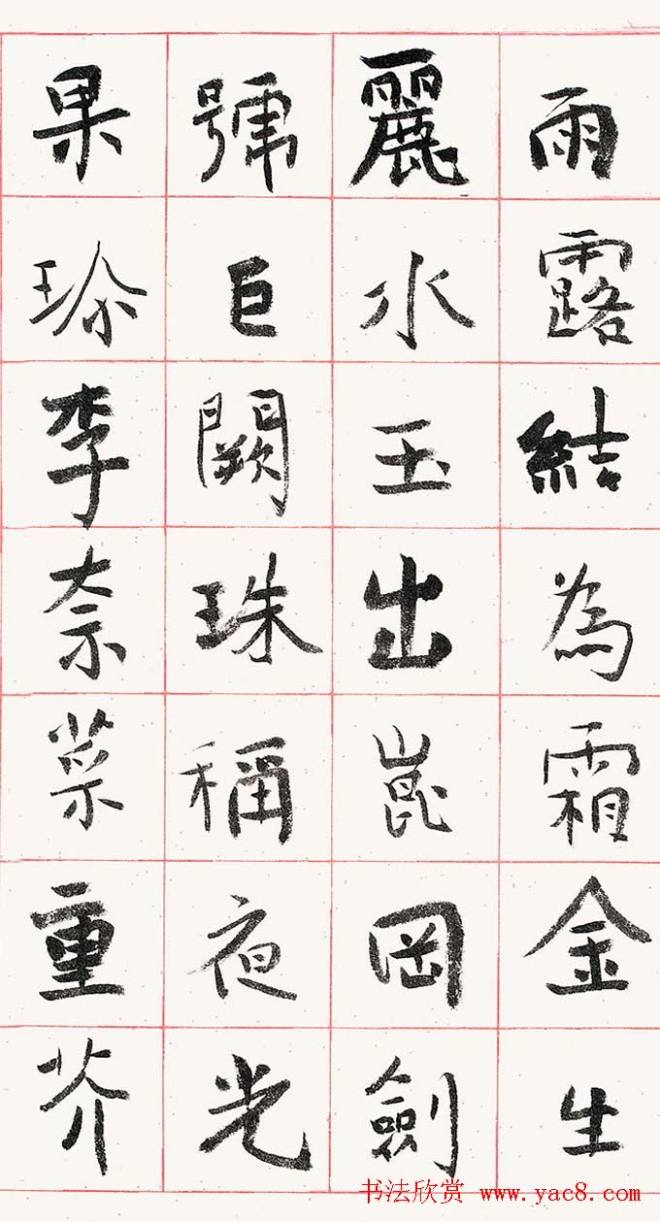 雨露結為霜金生
麗水玉出崑岡劍
號巨闕珠稱夜光
果珍李柰菜重芥
书法欣赏 www.yac8.com